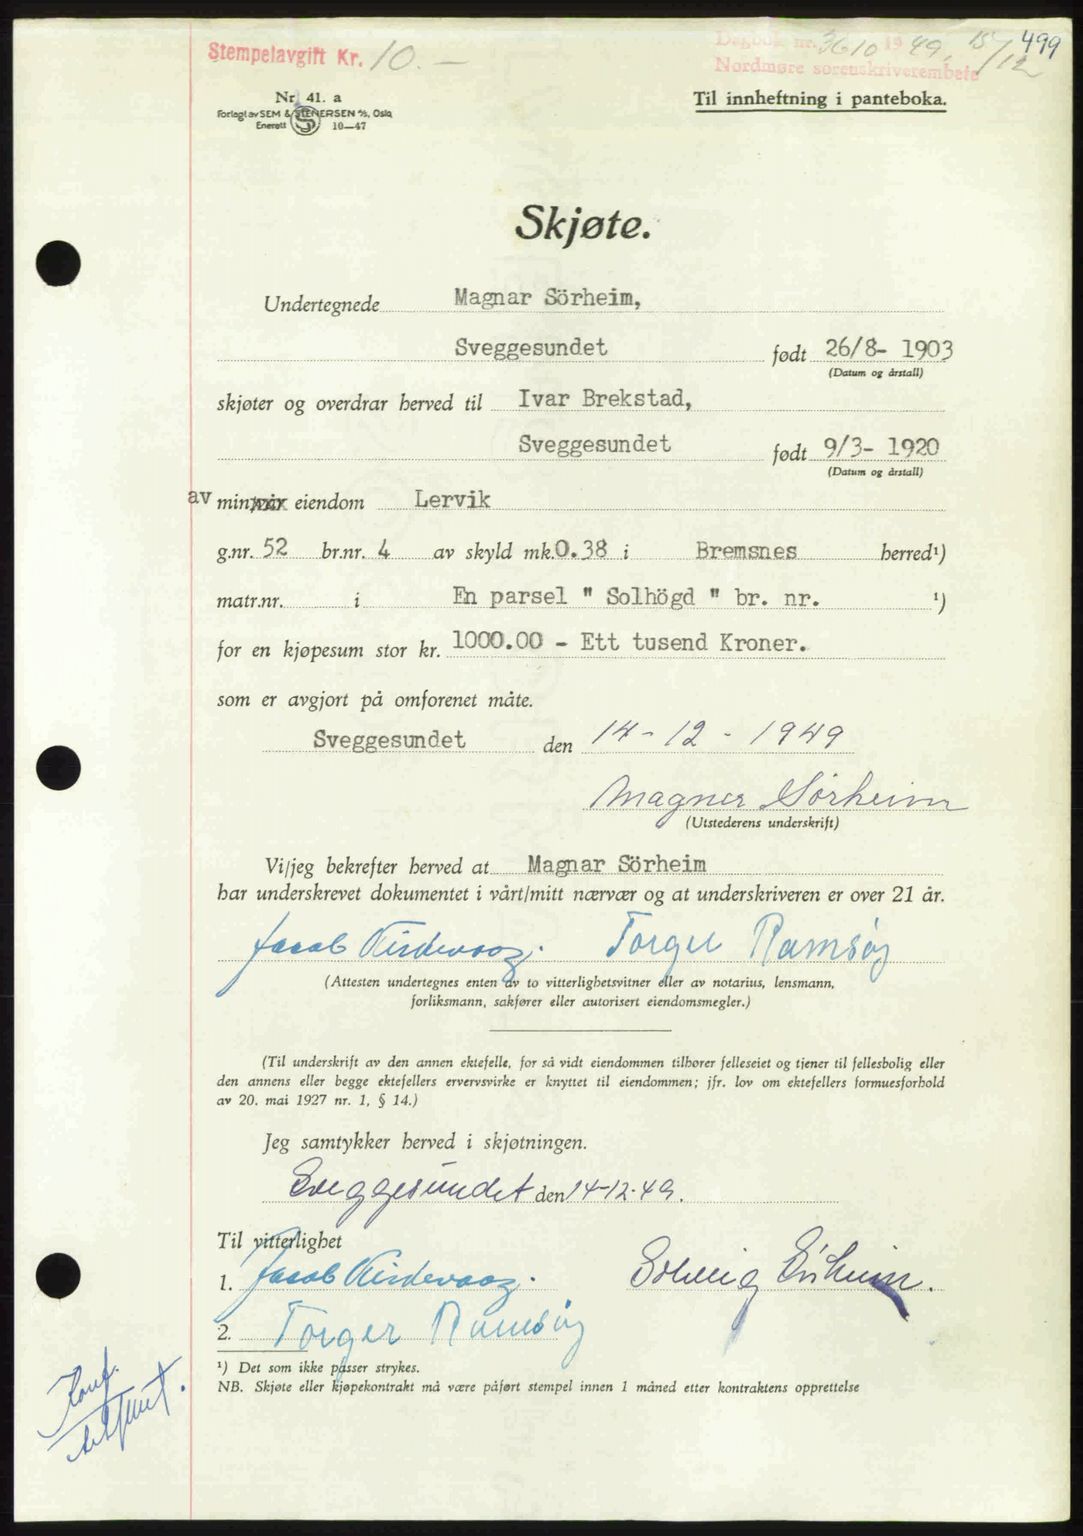 Stempelavgift Kr. 10.—
Dagbok nr. 3610 1949. 15/12
Nordmøre sorenskriverembete
499
Nr. 41. a
Forlagt av SEM & STENERSEN A/S, Oslo
Enerett 10—47
Til innheftning i panteboka.
Skjøte.
Undertegnede Magnar Sörheim,
Sveggesundet født 26/8- 1903
(Datum og årstall)
skjøter og overdrar herved til Ivar Brekstad,
Sveggesundet født 9/3- 1920
(Datum og årstall)
av min eiendom Lervik
g.nr. 52 br.nr. 4 av skyld mk. 0.38 i Bremsnes herred¹)
matr.nr. i En parsel " Solhögd " br. nr. ¹)
for en kjøpesum stor kr. 1000.00 - Ett tusend Kroner.
som er avgjort på omforenet måte.
Sveggesundet den 14-12-1949
Magnar Sørheim
(Utstederens underskrift)
Vi/jeg bekrefter herved at Magnar Sörheim
har underskrevet dokumentet i vårt/mitt nærvær og at underskriveren er over 21 år.
Jacob Kirkevaag. Torger Ramsøy
(Attesten undertegnes enten av to vitterlighetsvitner eller av notarius, lensmann,
forliksmann, sakfører eller autorisert eiendomsmegler.)
(Til underskrift av den annen ektefelle, for så vidt eiendommen tilhører felleseiet og tjener til fellesbolig eller
den annens eller begge ektefellers ervervsvirke er knyttet til eiendommen; jfr. lov om ektefellers formuesforhold
av 20. mai 1927 nr. 1, § 14.)
Jeg samtykker herved i skjøtningen.
Sveggesundet den 14-12-49.
Til vitterlighet
1. Jacob Kirkevaag. Solveig Sörheim.
2. Torger Ramsøy
¹) Det som ikke passer strykes.
NB. Skjøte eller kjøpekontrakt må være påført stempel innen 1 måned etter kontraktens opprettelse
Konf.